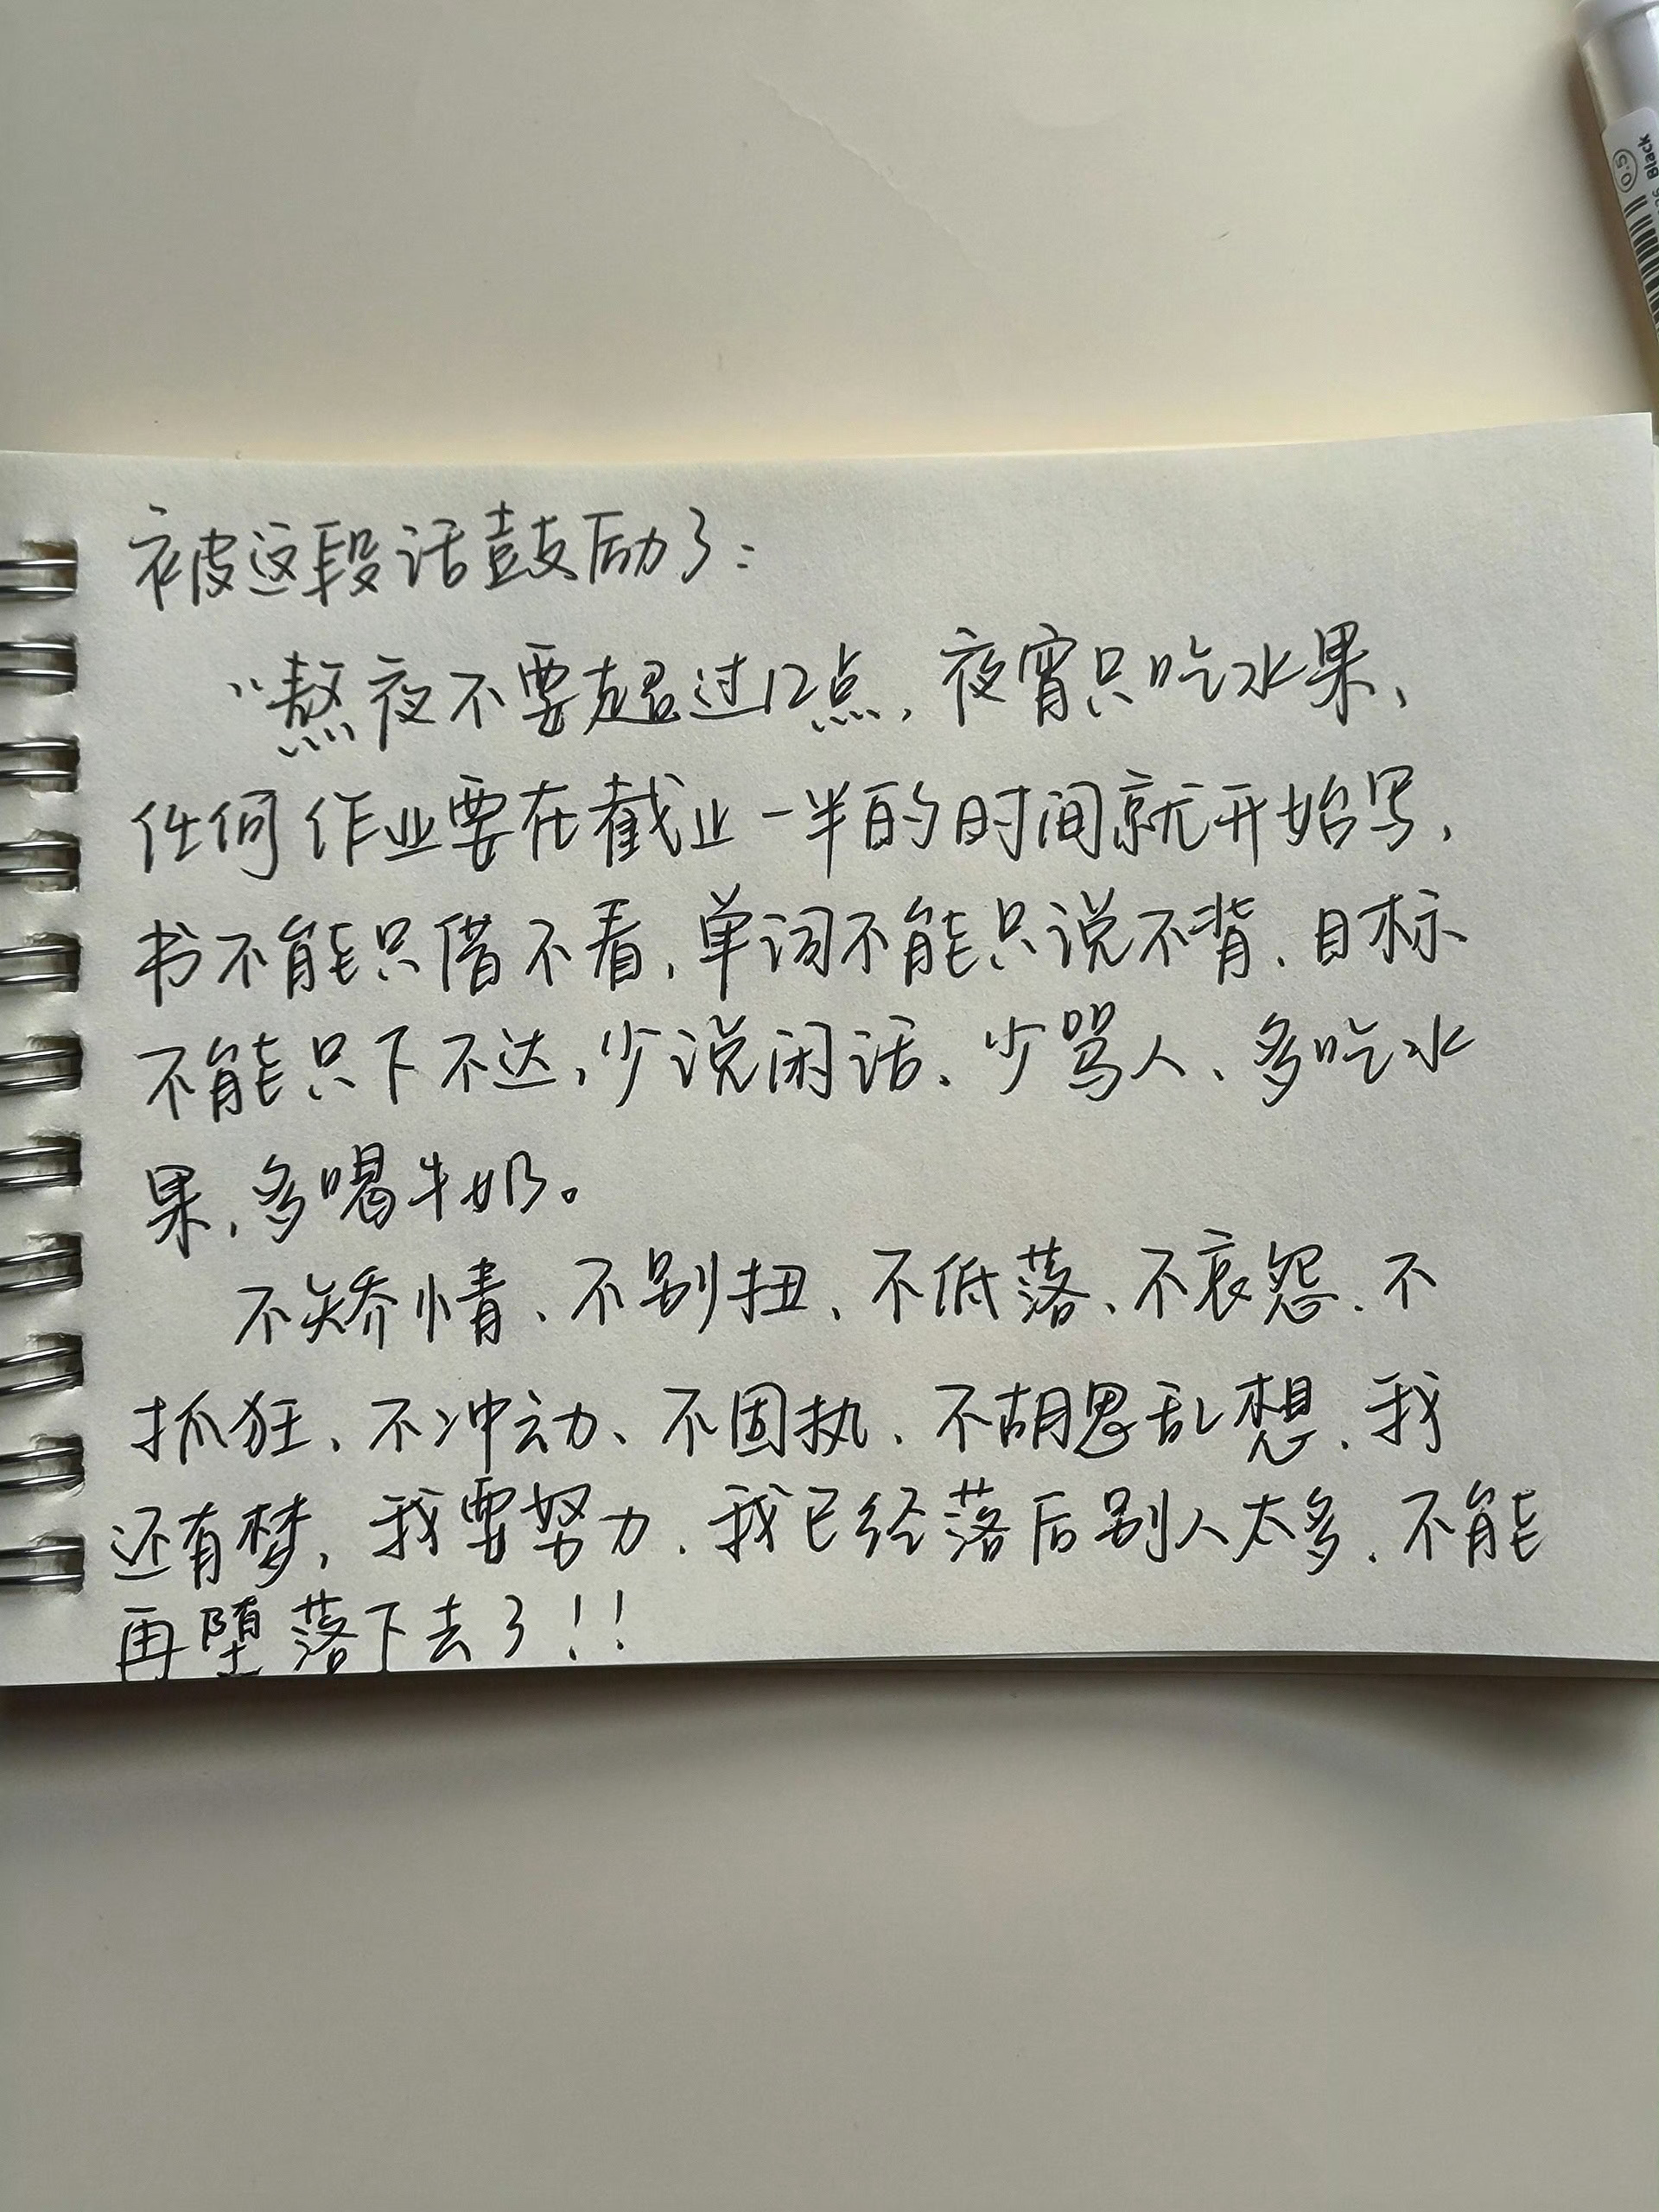 Black
0.5
被这段话鼓励了：
“熬夜不要超过12点，夜宵只吃水果，
任何作业要在截止一半的时间就开始写，
书不能只借不看，单词不能只说不背、目标
不能只下不达，少说闲话、少骂人、多吃水
果，多喝牛奶。
不矫情、不别扭、不低落、不哀怨、不
抓狂、不冲动、不固执、不胡思乱想、我
还有梦，我要努力、我已经落后别人太多、不能
再堕落下去了！！